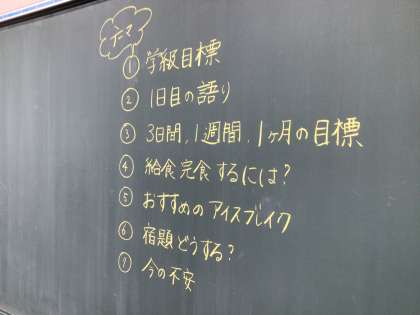 テーマ
① 学級目標
② 1日目の語り
③ 3日間、1週間、1ヶ月の目標
④ 給食完食するには?
⑤ おすすめのアイスブレイク
⑥ 宿題どうする?
⑦ 今の不安